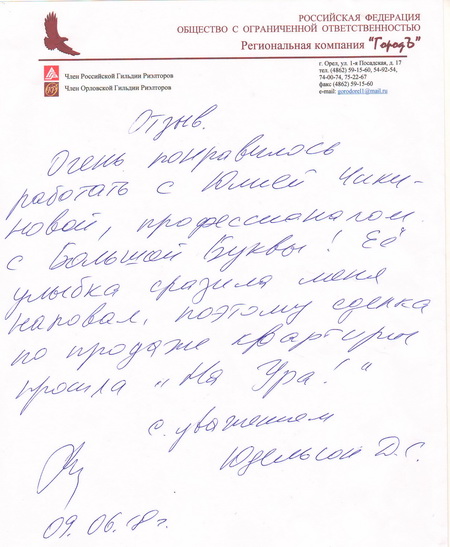 РОССИЙСКАЯ ФЕДЕРАЦИЯ
ОБЩЕСТВО С ОГРАНИЧЕННОЙ ОТВЕТСТВЕННОСТЬЮ
Региональная компания "Городъ"
Член Российской Гильдии Риэлторов
Член Орловской Гильдии Риэлторов
г. Орел, ул. 1-я Посадская, д. 17
тел. (4862) 59-15-60, 54-92-54,
74-00-74, 75-22-67
факс (4862) 59-15-60
e-mail: gorodorel1@mail.ru
Отзыв.
Очень понравилось
работать с Юлией Чики-
новой, профессионалом
с Большой Буквы! Её
улыбка сразила меня
наповал, поэтому сделка
по продаже квартиры
прошла "На Ура!"
с уважением
Юдельсон Д.С.
09.06.18г.